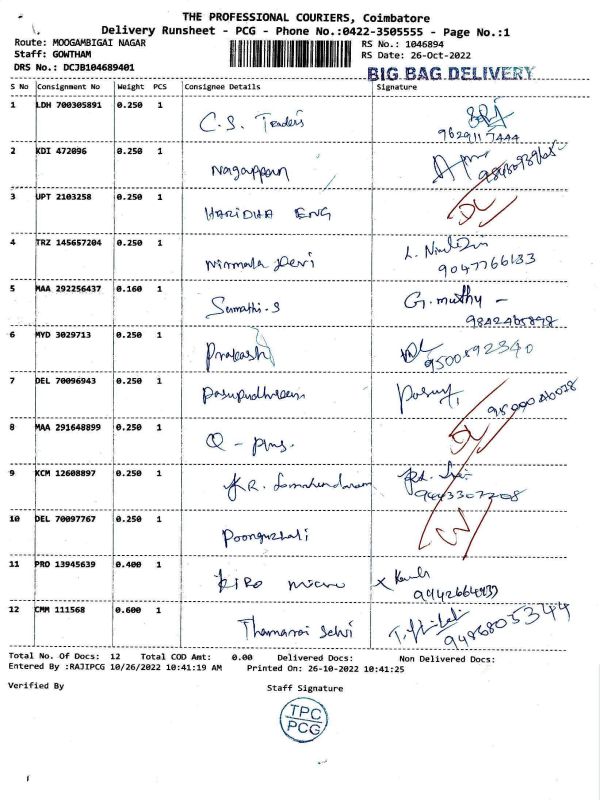 THE PROFESSIONAL COURIERS, Coimbatore
Delivery Runsheet - PCG - Phone No.:0422-3505555 - Page No.:1
Route: MOOGAMBIGAI NAGAR RS No.: 1046894
Staff: GOWTHAM RS Date: 26-Oct-2022
DRS No.: DCJB104689401
BIG BAG DELIVERY
S No Consignment No Weight PCS Consignee Details Signature
1 LDH 700305891 0.250 1 C.S. Traders
9629117444
2 KDI 472096 0.250 1 Nagappan
3 UPT 2103258 0.250 1 HARIDHA ENG DL
4 TRZ 145657204 0.250 1 Nirmala Devi
9047766133
5 MAA 292256437 0.160 1 Sumathi.S G. muthy -
6 MYD 3029713 0.250 1 Prakash
9500892340
7 DEL 70096943 0.250 1
8 MAA 291648899 0.250 1 Q - plus. DL
9 KCM 12608897 0.250 1 KR.
9443307208
10 DEL 70097767 0.250 1 Poonguzhali
11 PRO 13945639 0.400 1 KIRO micro
12 CMM 111568 0.600 1 Thamarai Selvi
9486805344
Total No. Of Docs: 12 Total COD Amt: 0.00 Delivered Docs: Non Delivered Docs:
Entered By :RAJIPCG 10/26/2022 10:41:19 AM Printed On: 26-10-2022 10:41:25
Verified By Staff Signature
TPC
PCG